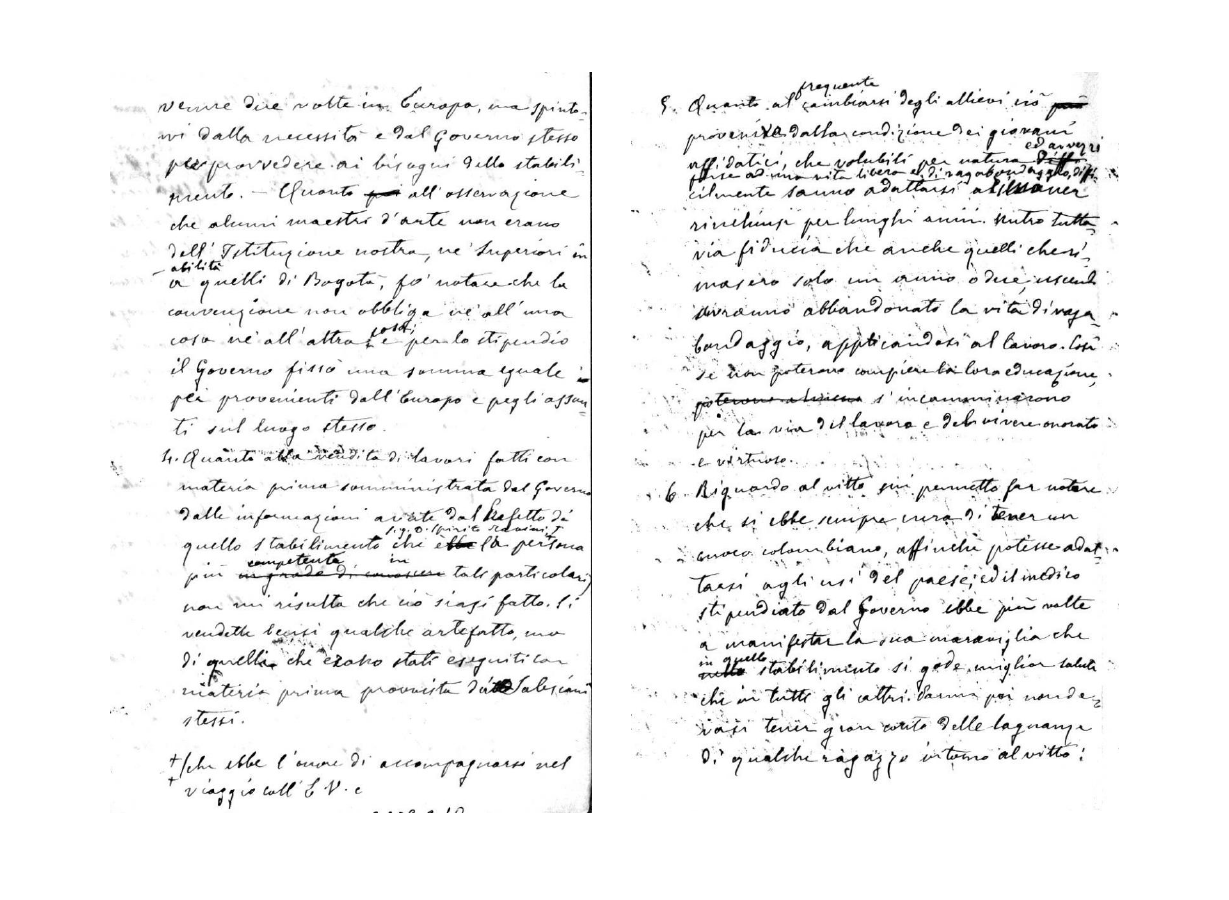 venire due volte in Europa, ma spinto-
vi dalla necessità e dal Governo stesso
per provvedere ai bisogni dello stabili-
mento. — Quanto all'osservazione
che alcuni maestri d'arte non erano
dell'Istituzione nostra, nè superiori in
abilità
a quelli di Bogotà, fo notare che la
convenzione non obbliga nè all'una
cosa nè all'altra; e per lo stipendio
il Governo fissò una somma eguale
pei provenienti dall'Europa e pegli assun-
ti sul luogo stesso.
4. Quanto alla vendita di lavori fatti con
materia prima somministrata dal Governo
dalle informazioni avute dal Prefetto di
sig. D. Spirito
quello stabilimento che è la persona
competente in
più in grado di conoscere tali particolari,
non mi risulta che ciò siasi fatto. Si
vendette bensì qualche artefatto, ma
di quelli che erano stati eseguiti con
materia prima provvista dai Salesiani
stessi.
+ (che ebbe l'onore di accompagnarsi nel
+ viaggio coll'E. V. e
frequente
5. Quanto al cambiarsi degli allievi ciò può
provenire dalla condizione dei giovani
ed avvezzi
affidatici, che volubili per natura
forse ad una vita libera e di vagabondaggio, diffi-
cilmente sanno adattarsi a rimaner
rinchiusi per lunghi anni. Nutro tutta-
via fiducia che anche quelli che ri-
masero solo un anno o due, uscendo
avranno abbandonato la vita di vaga-
bondaggio, applicandosi al lavoro. Così
se non poterono compiere la loro educazione,
poterono almeno s'incamminarono
per la via del lavoro e del vivere onorato
e virtuoso.
6. Riguardo al vitto mi permetto far notare
che si ebbe sempre cura di tener un
cuoco colombiano, affinchè potesse adat-
tarsi agli usi del paese; ed il medico
stipendiato dal Governo ebbe più volte
a manifestar la sua maraviglia che
in quello
nello stabilimento si gode miglior salute
che in tutti gli altri. Parmi poi non do-
versi tener gran conto delle lagnanze
di qualche ragazzo intorno al vitto;